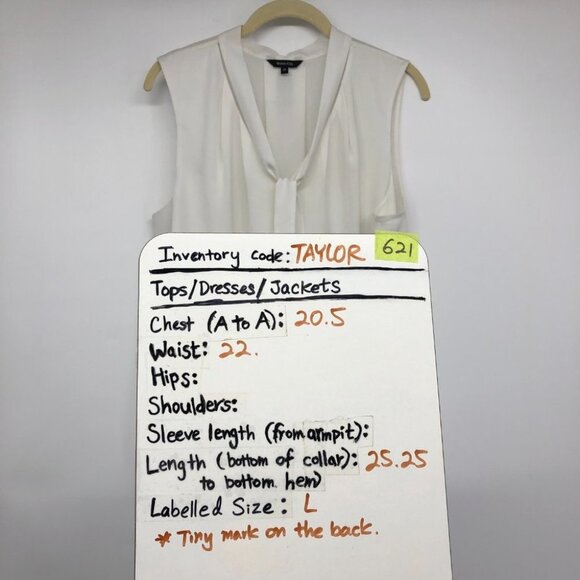 Inventory code: TAYLOR 621
Tops/Dresses/Jackets
Chest (A to A): 20.5
Waist: 22.
Hips:
Shoulders:
Sleeve length (from armpit):
Length (bottom of collar): 25.25
to bottom hem)
Labelled Size: L
* Tiny mark on the back.